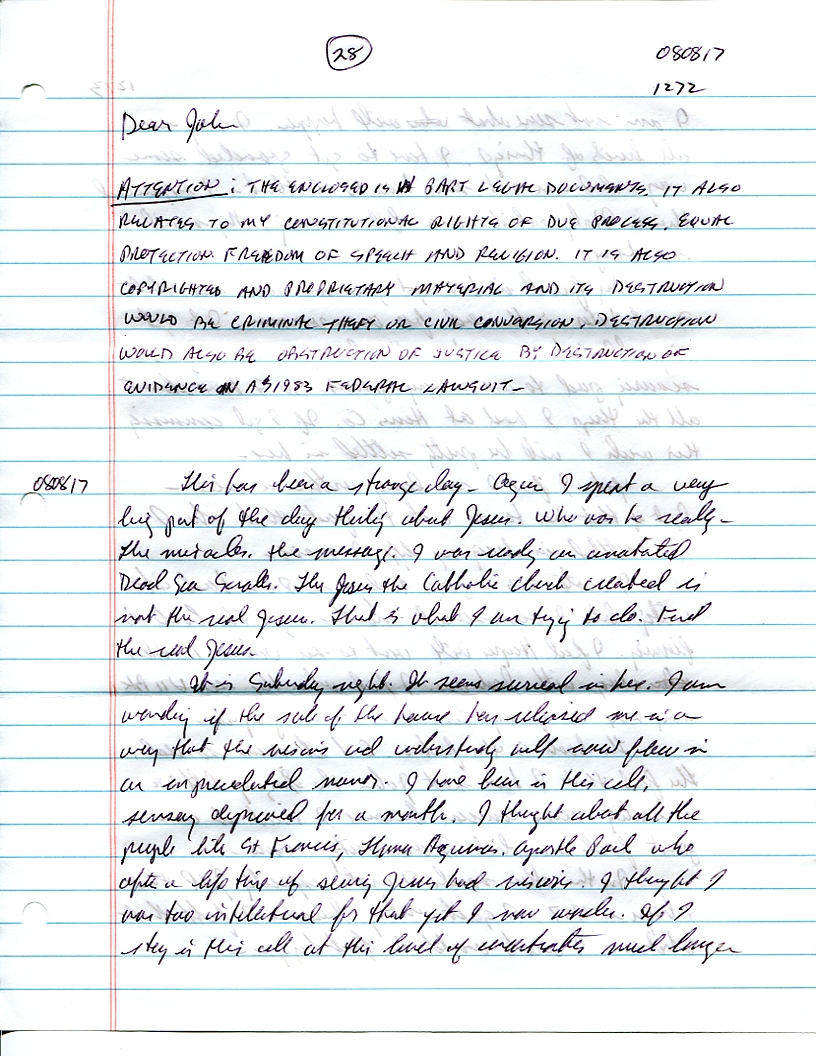 28
080817
1272
Dear John
ATTENTION: THE ENCLOSED IS IN PART LEGAL DOCUMENTS. IT ALSO
RELATES TO MY CONSTITUTIONAL RIGHTS OF DUE PROCESS, EQUAL
PROTECTION. FREEDOM OF SPEECH AND RELIGION. IT IS ALSO
COPYRIGHTED AND PROPRIETARY MATERIAL AND ITS DESTRUCTION
WOULD BE CRIMINAL THEFT OR CIVIL CONVERSION. DESTRUCTION
WOULD ALSO BE OBSTRUCTION OF JUSTICE BY DESTRUCTION OF
EVIDENCE IN A §1983 FEDERAL LAWSUIT-
080817 This has been a strange day- Again I spent a very
big part of the day thinking about Jesus. Who was he really-
the miracles. the message. I was reading an annotated
Dead Sea Scrolls. The Jesus the Catholic church created is
not the real Jesus. That is what I am trying to do. Find
the real Jesus.
It is Saturday night. It seems surreal in here. I am
wondering if the sale of the house has released me in a
way that the visions and understanding will now flow in
an unprecedented manner. I have been in this cell,
sensory deprived for a month. I thought about all the
people like St Francis, Thomas Aquinas. Apostle Paul who
after a life time of seeing Jesus had visions. I thought I
was too intellectual for that yet I now wonder. If I
stay in this cell at this level of concentration much longer